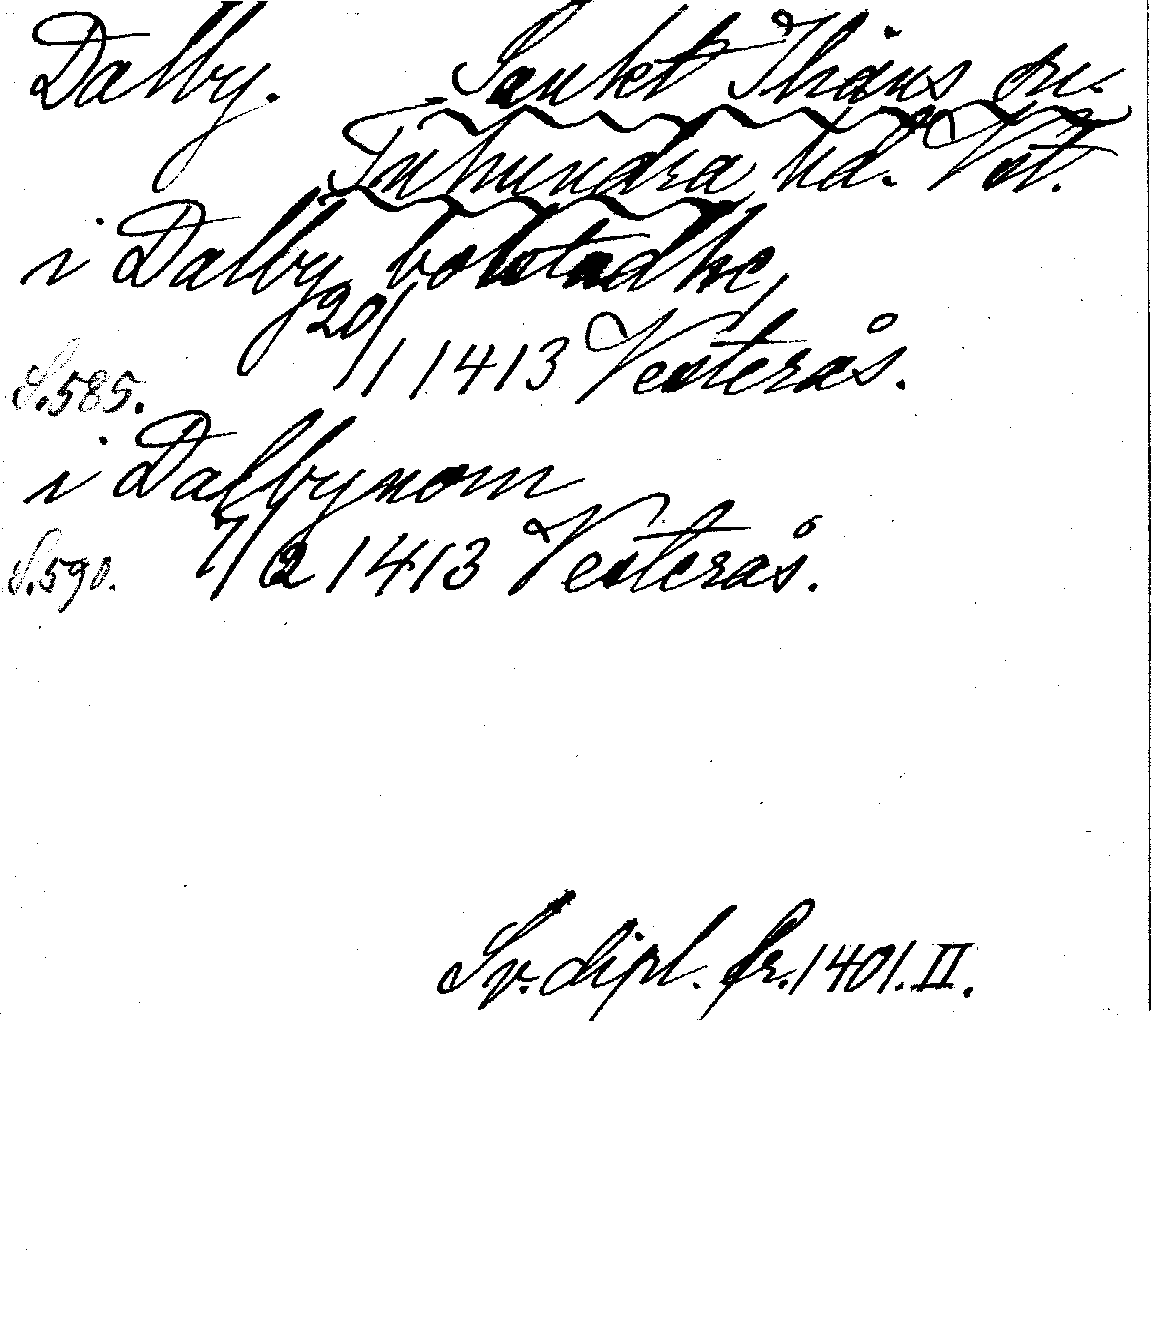 Dalby. Sankt Ilians sn.
Tuhundra hd. Vst.
i Dalby bolstadhe,
20/1 1413 Vesterås.
S. 585.
i Dalbynom
S. 590. 7/2 1413 Vesterås.
Sv. dipl. fr. 1401. II.